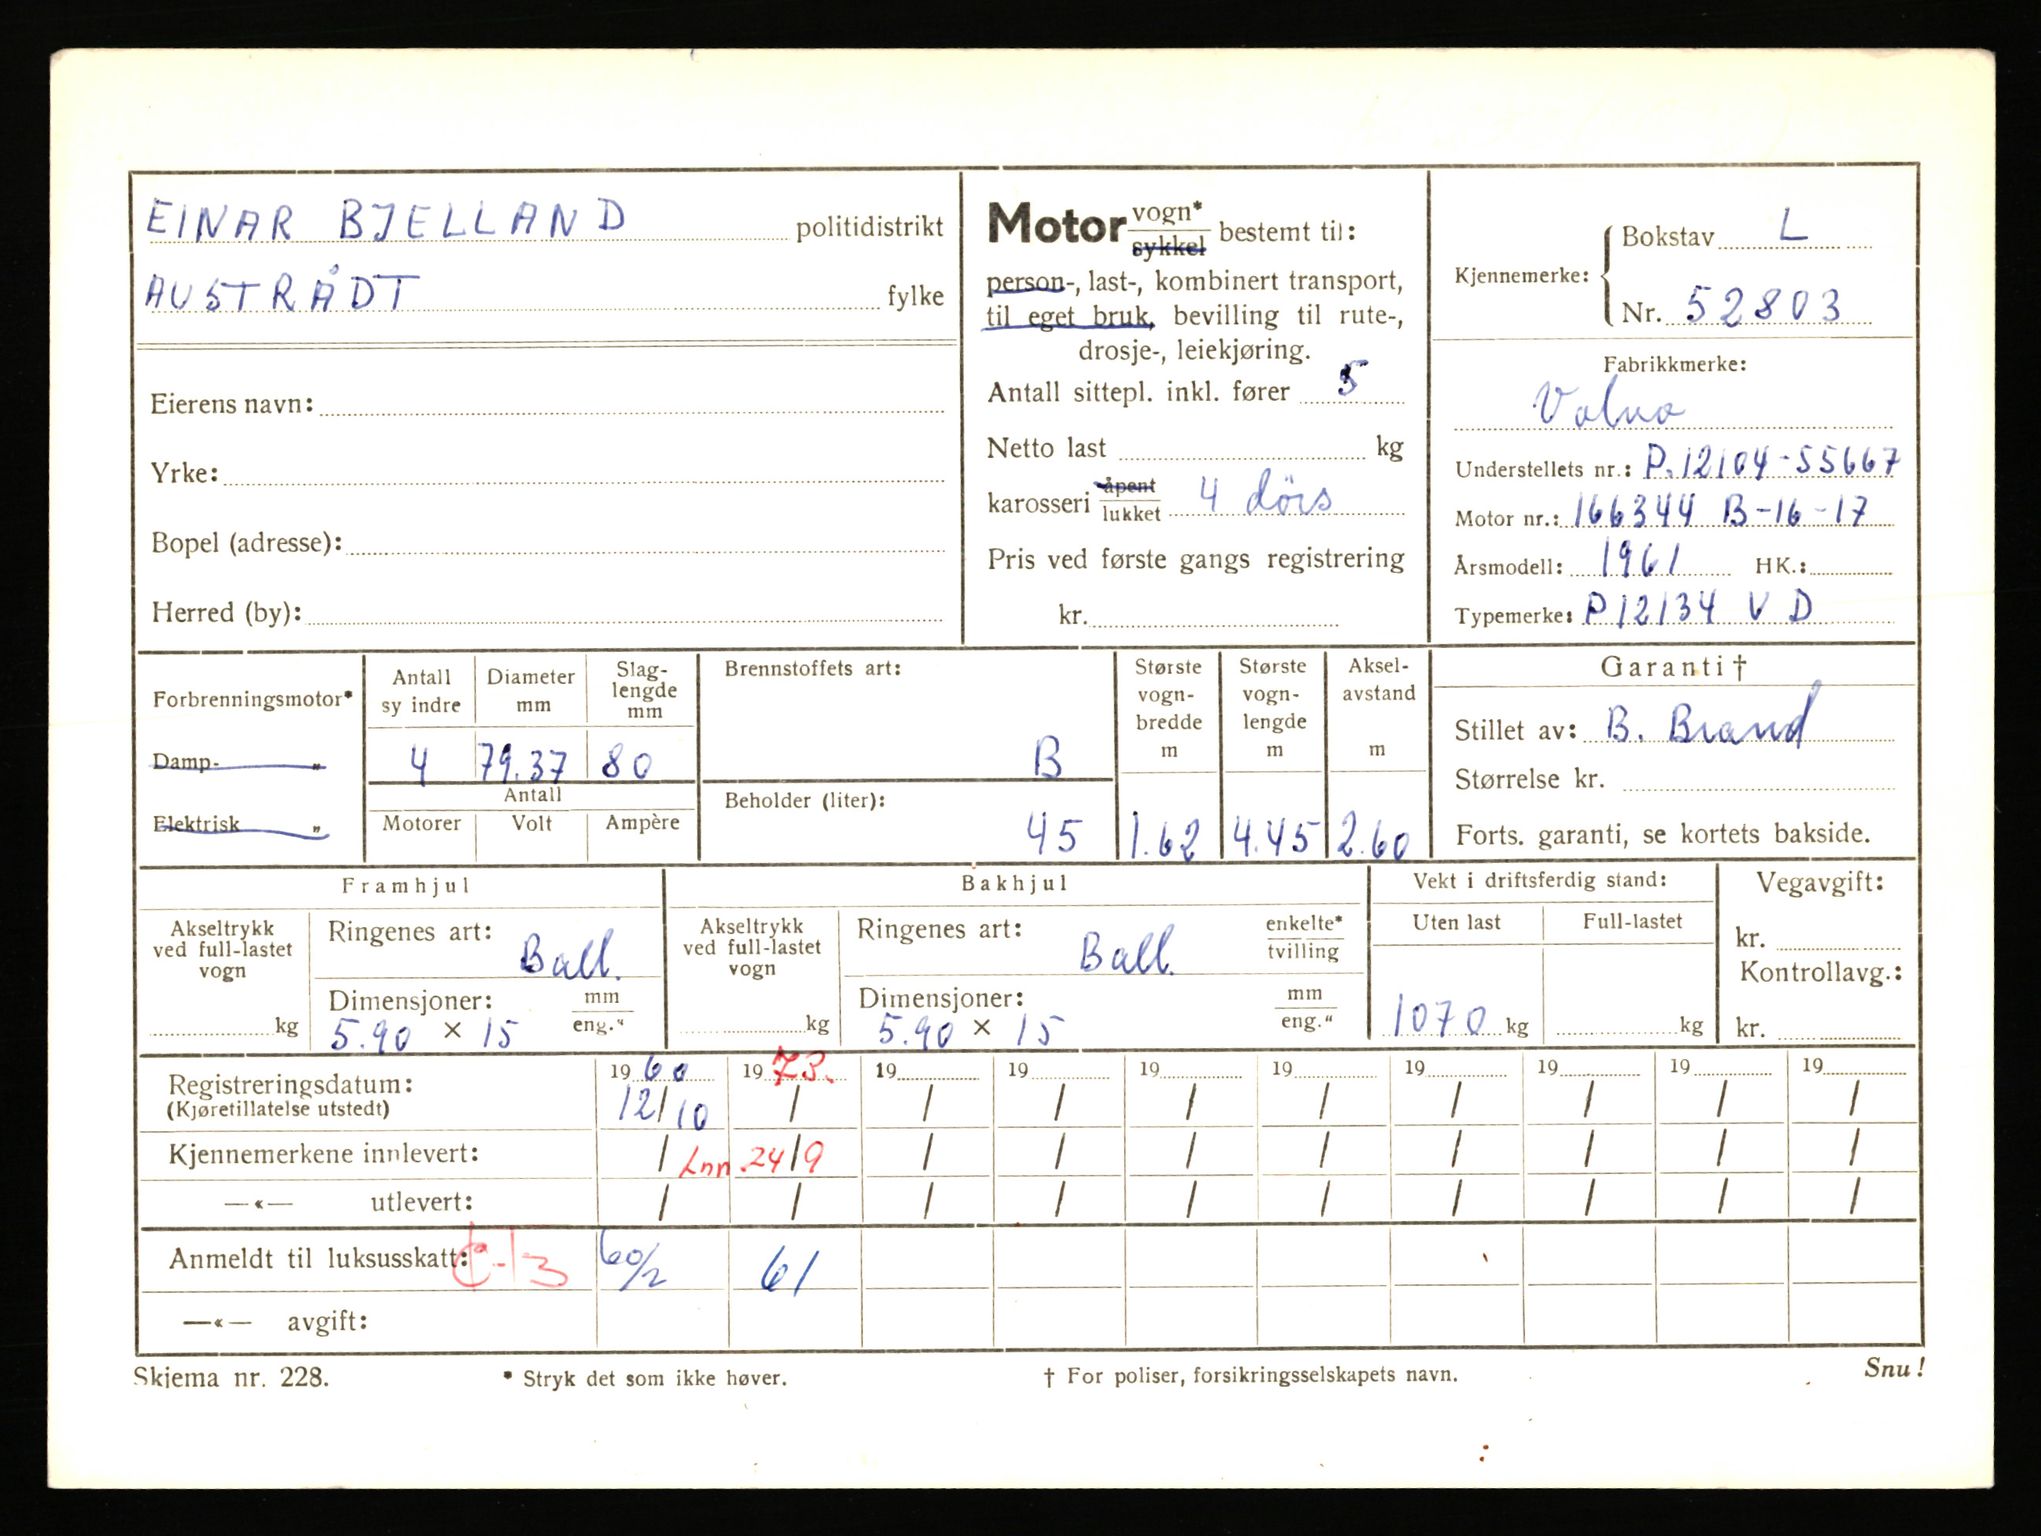 EINAR BJELLAND politidistrikt
AUSTRÅDT fylke
Eierens navn:
Yrke:
Bopel (adresse):
Herred (by):
Motor vogn*
sykkel bestemt til:
person-, last-, kombinert transport,
til eget bruk, bevilling til rute-,
drosje-, leiekjøring.
Antall sittepl. inkl. fører 5
Netto last kg
karosseri åpent
lukket 4 dörs
Pris ved første gangs registrering
kr.
Kjennemerke: Bokstav L
Nr. 52803
Fabrikkmerke:
Volvo
Understellets nr.: P.12104-55667
Motor nr.: 166344 B-16-17
Årsmodell: 1961 HK.:
Typemerke: P12134 V D
Forbrenningsmotor*
Damp- „
Elektrisk „
Antall
sy indre
4
Diameter
mm
79.37
Slag-
lengde
mm
80
Antall
Motorer Volt Ampère
Brennstoffets art:
B
Beholder (liter):
45
Største
vogn-
bredde
m
1.62
Største
vogn-
lengde
m
4.45
Aksel-
avstand
m
2.60
Garanti †
Stillet av: B. Brand
Størrelse kr.
Forts. garanti, se kortets bakside.
Framhjul
Akseltrykk
ved full-lastet
vogn
kg
Ringenes art:
Ball.
Dimensjoner: mm
eng."
5.90 × 15
Bakhjul
Akseltrykk
ved full-lastet
vogn
kg
Ringenes art: enkelte*
tvilling
Ball.
Dimensjoner: mm
eng."
5.90 × 15
Vekt i driftsferdig stand:
Uten last Full-lastet
1070 kg kg
Vegavgift:
kr.
Kontrollavg.:
kr.
Registreringsdatum:
(Kjøretillatelse utstedt)
1960 1973. 19 19 19 19 19 19 19 19
12/10 / / / / / / / / /
Kjennemerkene innlevert: / Inn. 24/9 / / / / / / / /
—«— utlevert: / / / / / / / / / /
Anmeldt til luksusskatt: 60/2 61
—«— avgift:
Skjema nr. 228. * Stryk det som ikke høver. † For poliser, forsikringsselskapets navn. Snu!